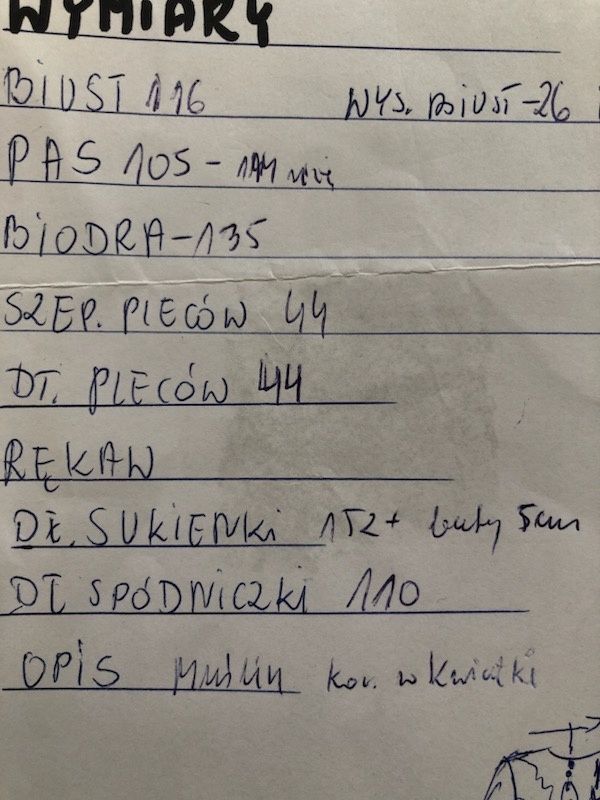 WYMIARY
BIUST 116 WYS. BIUST-26
PAS 105 -
BIODRA-135
SZER. PLECÓW 44
DŁ. PLECÓW 44
RĘKAW
DŁ. SUKIENKI 152+ buty 5cm
DŁ SPÓDNICZKI 110
OPIS Muślin kor. w kwiatki